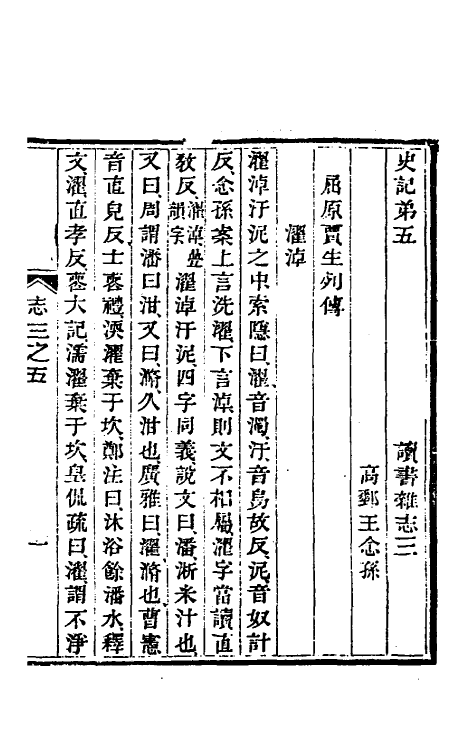 史記弟五
讀書雜志三
高郵王念孫
屈原賈生列傳
濯淖
濯淖汙泥之中索隱曰濯音濁汙音烏故反泥音奴計
反念孫案上言洗濯下言淖則文不相屬濯字當讀直
敎反濯淖疊韻字濯淖汙泥四字同義說文曰潘淅米汁也
又曰周謂潘曰泔又曰滫久泔也廣雅曰濯滫也曹憲
音直兒反士喪禮渜濯棄于坎鄭注曰沐浴餘潘水釋
文濯直孝反喪大記濡濯棄于坎皇侃疏曰濯謂不淨
志三之五
一